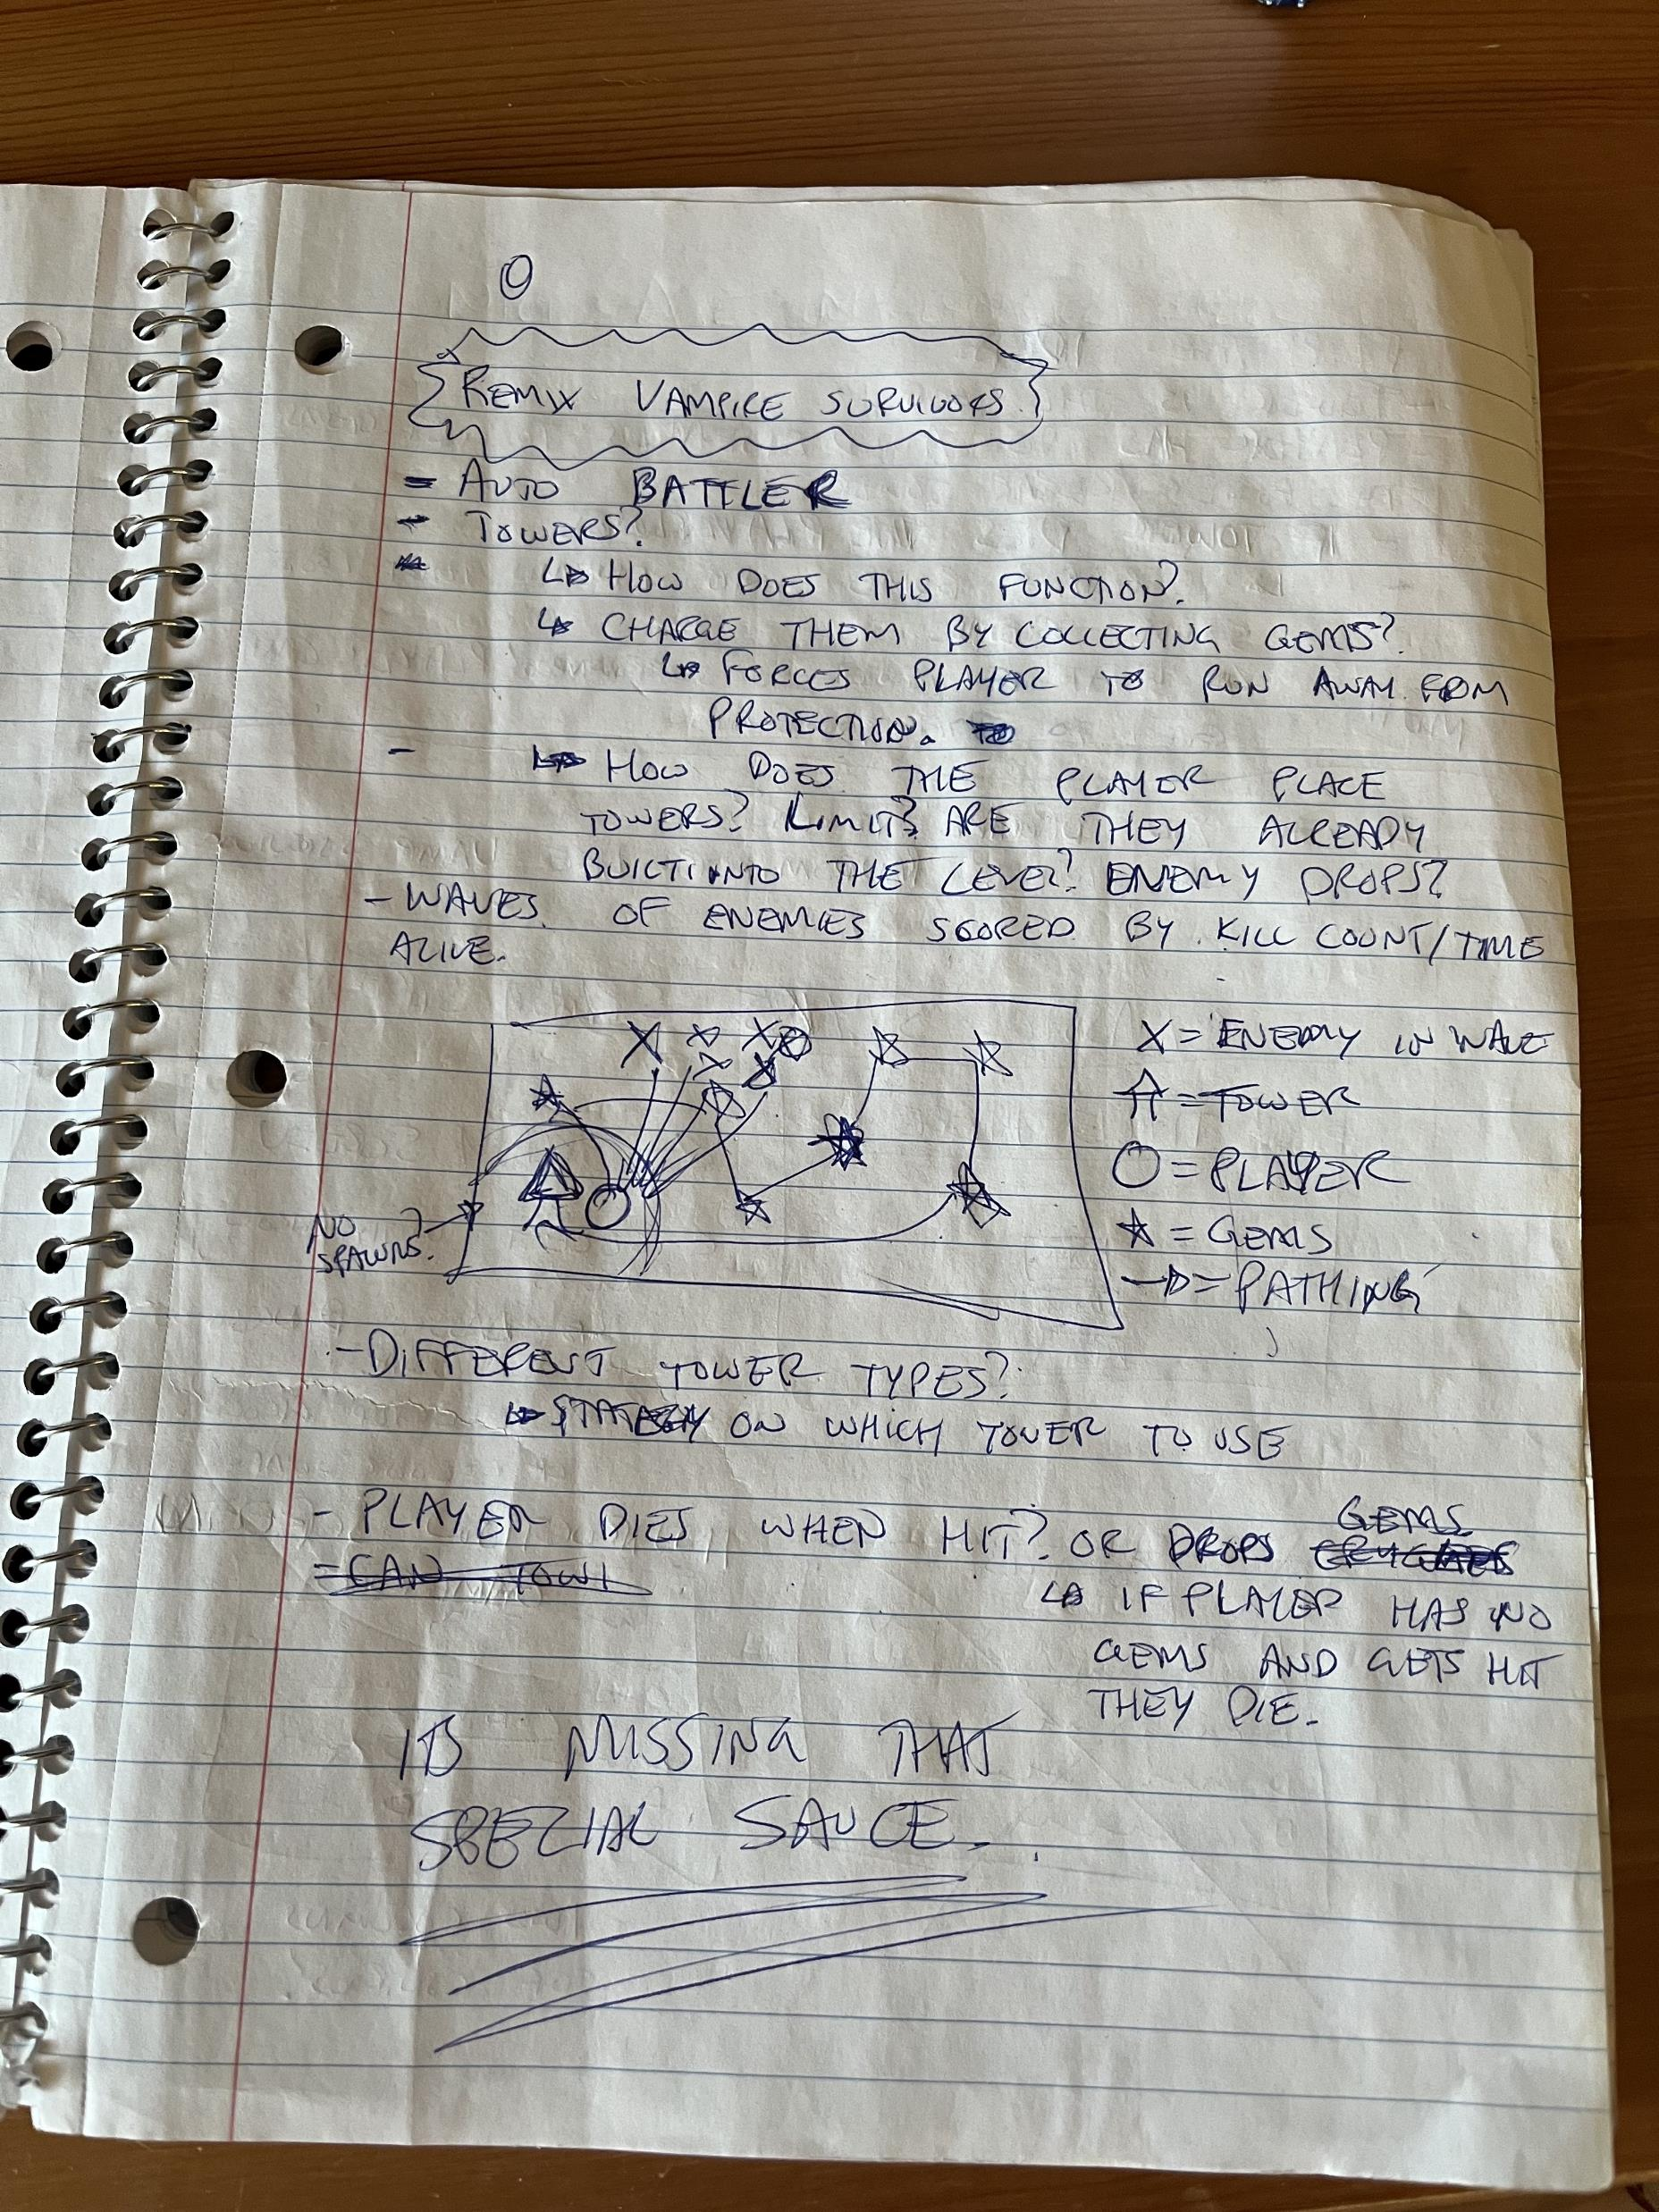 REMIX VAMPIRE SURVIVORS
- AUTO BATTLER
- TOWERS?
↳ HOW DOES THIS FUNCTION?
↳ CHARGE THEM BY COLLECTING GEMS?
↳ FORCES PLAYER TO RUN AWAY FROM
PROTECTION.
- ↳ HOW DOES THE PLAYER PLACE
TOWERS? LIMIT? ARE THEY ALREADY
BUILT INTO THE LEVEL? ENEMY DROPS?
- WAVES OF ENEMIES SCORED BY KILL COUNT/TIME
ALIVE.
X = ENEMY IN WAVE
= TOWER
O = PLAYER
☆ = GEMS
→ = PATHING
NO
SPAWNS?
- DIFFERENT TOWER TYPES?
↳ STRATEGY ON WHICH TOWER TO USE
- PLAYER DIES WHEN HIT? OR DROPS GEMS
- CAN TOW
↳ IF PLAYER HAS NO
GEMS AND GETS HIT
THEY DIE.
ITS MISSING THAT
SPECIAL SAUCE.